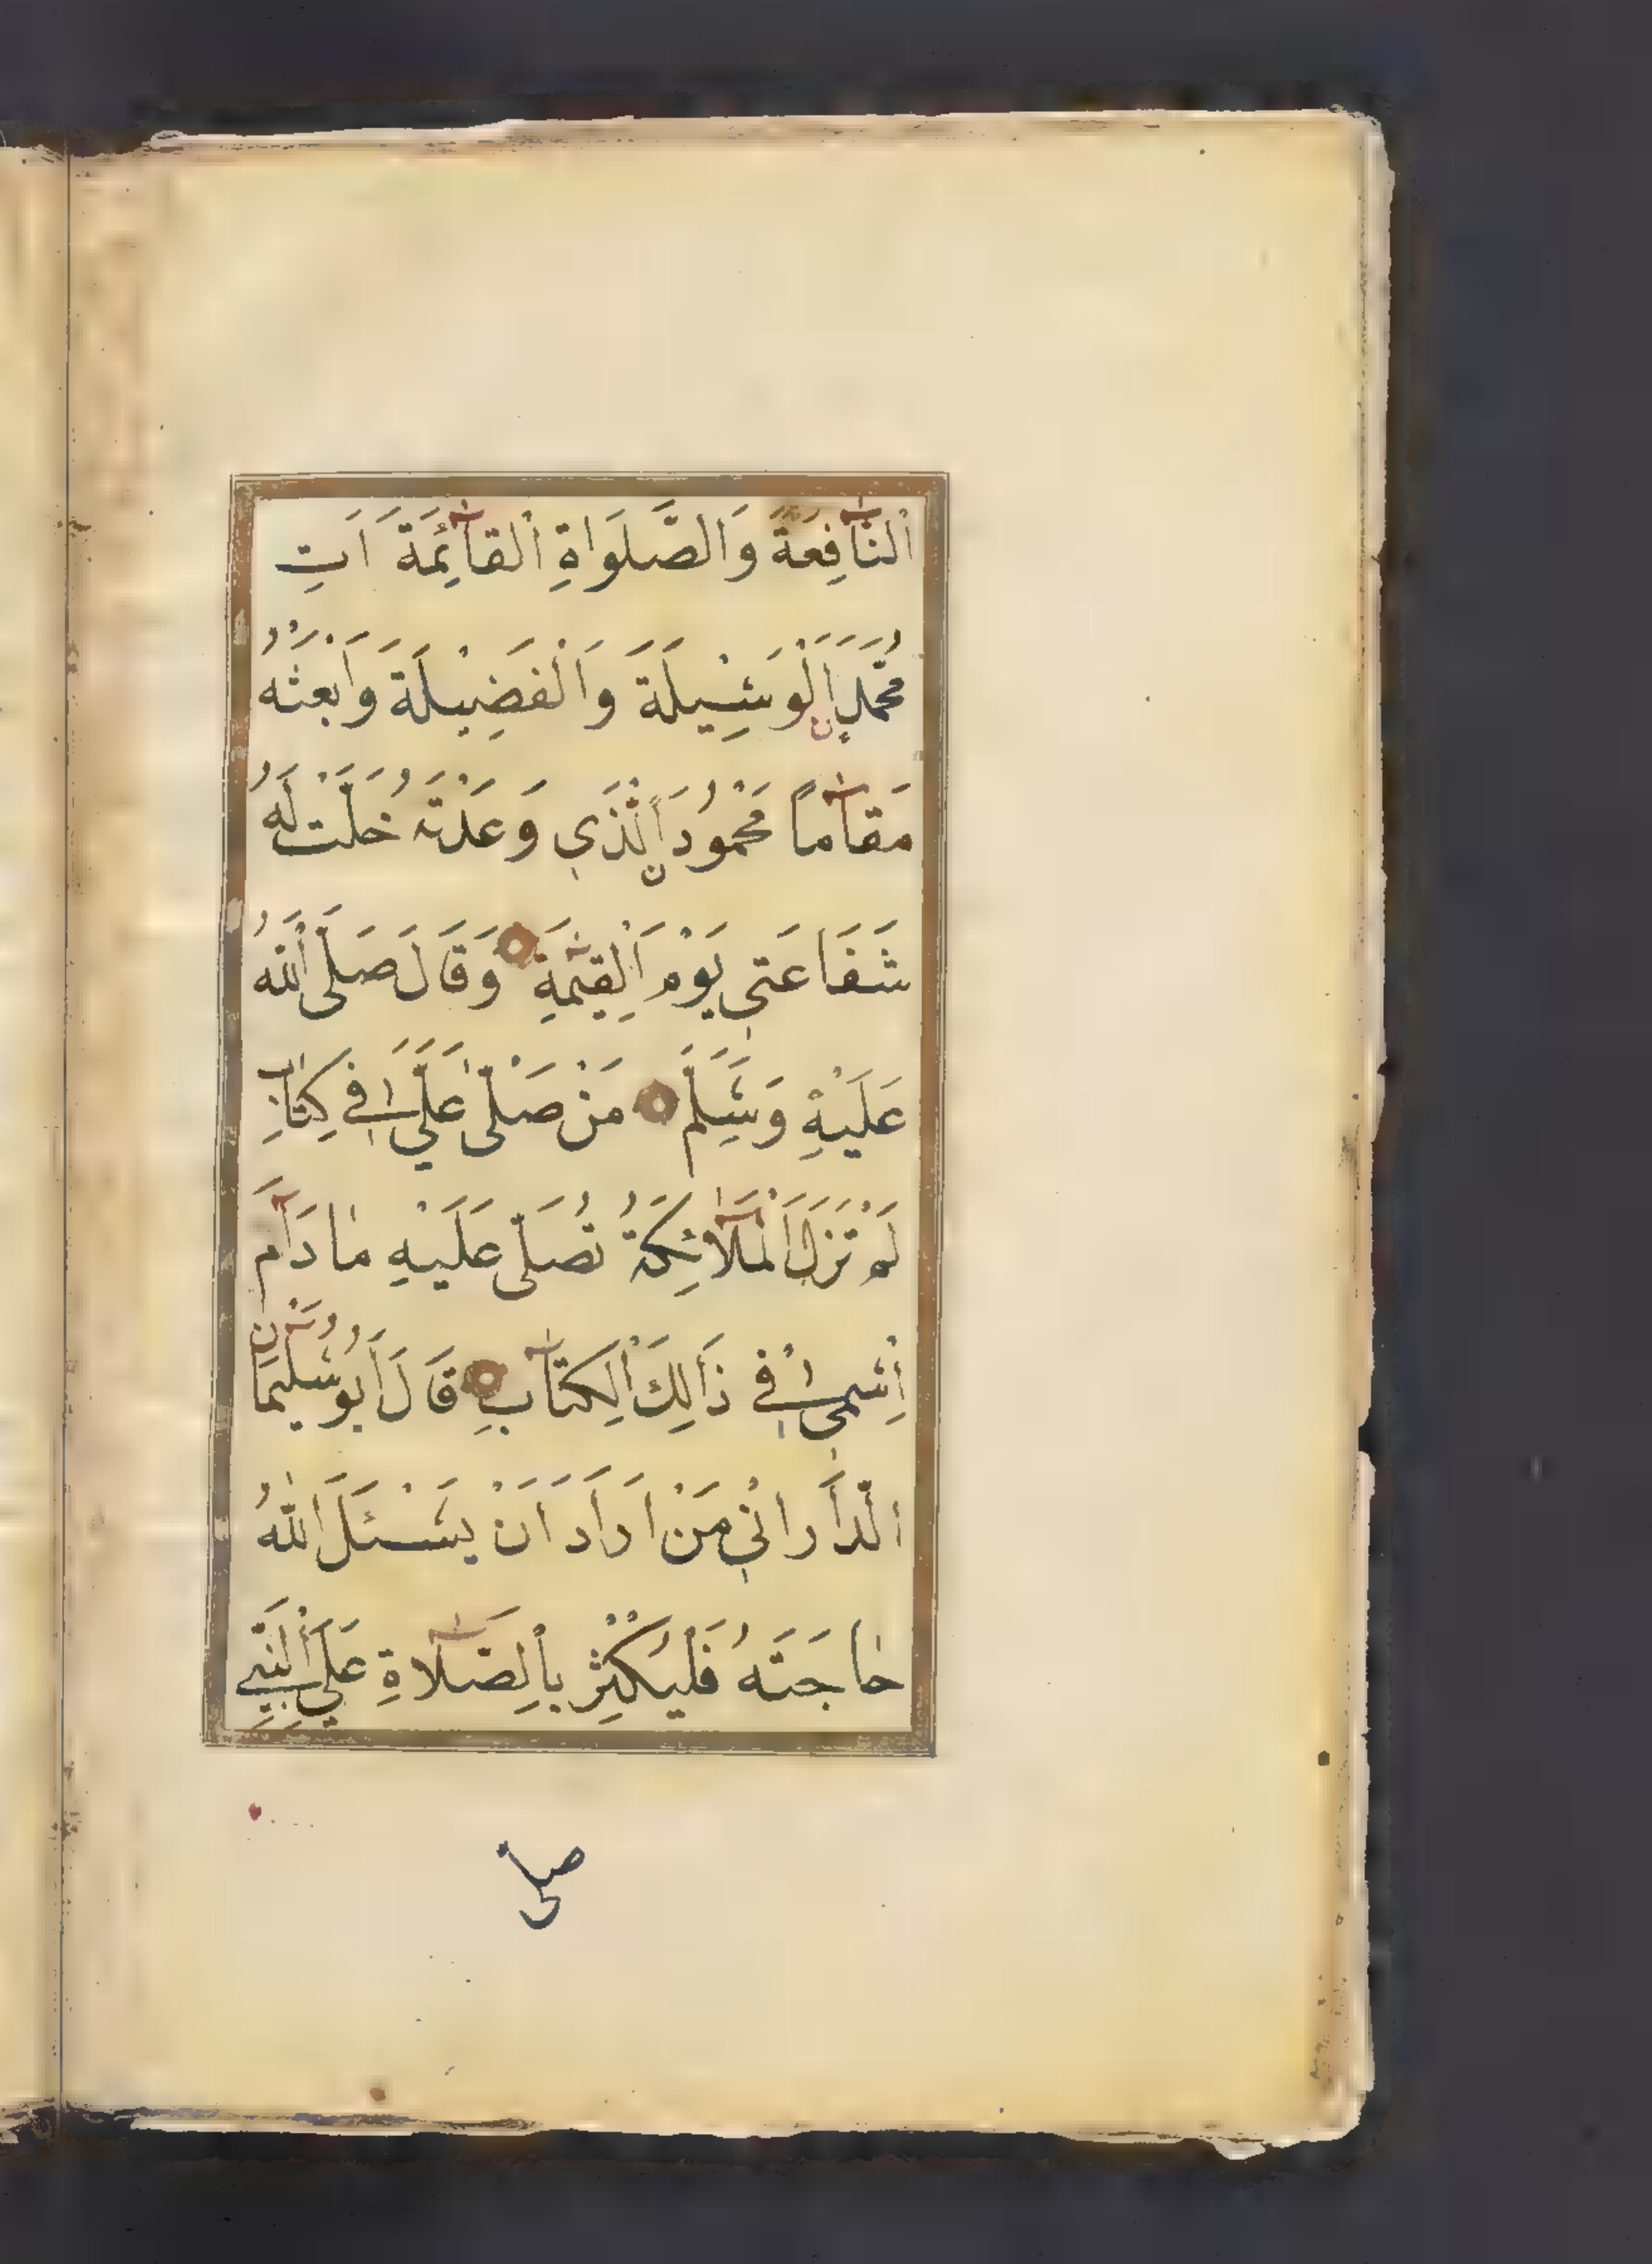 اَلنَّافِعَةِ وَالصَّلَوَاةِ اْلقَائِمَةَ اَتِ
مُحَمَّدَ اِلْوَسِيْلَةَ وَاَلْفَضِيْلَةَ وَاَبْعَثْهُ
مَقَامًا مَحْمُوْدَ اِلَّذَي وَعَدْتَهُ حَلَّتْ لَهُ
شَفَاعَتِي يَوْمَ اَلْقِيٰمَةِ وَقَالَ صَلَّى اَللّٰهُ
عَلَيْهِ وَسَلَّمَ مَنْ صَلَّى عَلَيَّ فِي كِتَابٍ
لَمْ تَزَلِ اَلْمَلَائِكَةُ تُصَلِّى عَلَيْهِ مَا دَامَ
اِسْمِى فِي ذَالِكَ اْلكِتَابِ قَالَ اَبُوْ سُلَيْمَانَ
الدَّارَانِي مَنْ اَرَادَ اَنْ يَسْئَلَ اَللّٰهُ
حَاجَتَهُ فَلْيُكْثِرْ بِالصَّلَاةِ عَلَي اَلنَّبِيِّ
صلى